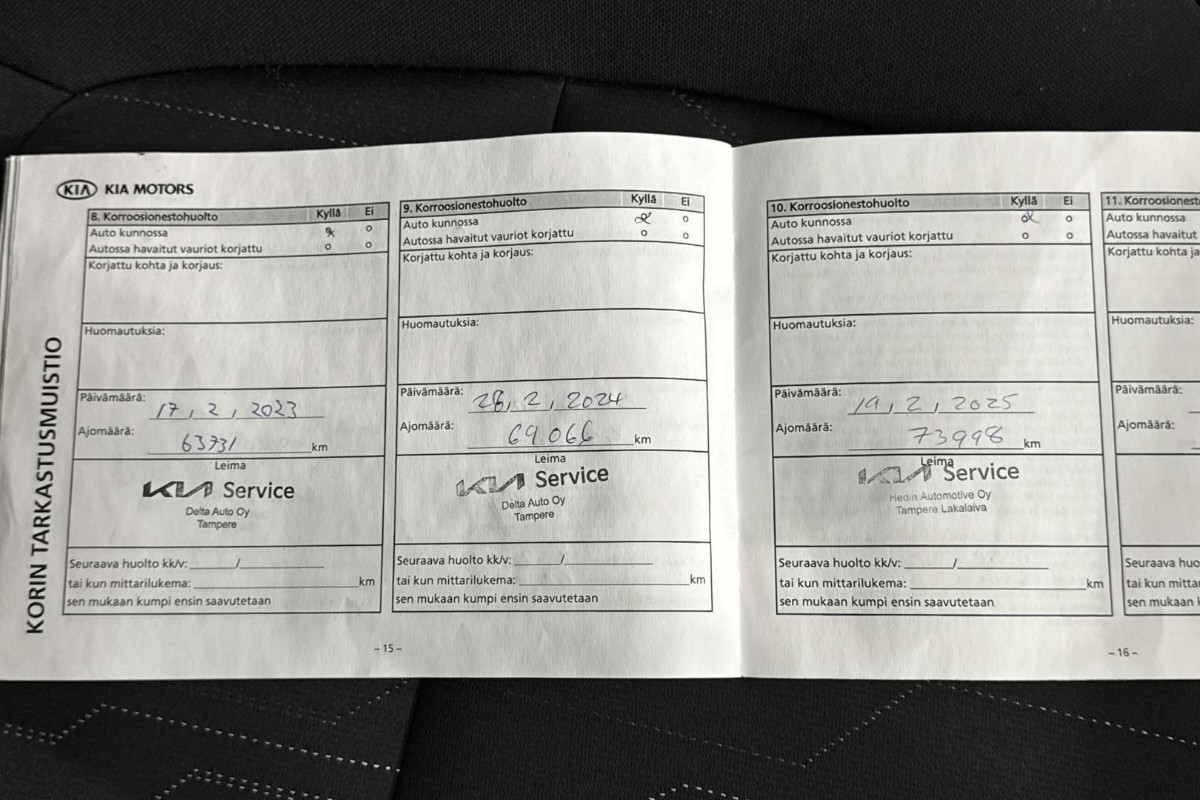 KIA KIA MOTORS
KORIN TARKASTUSMUISTIO
8. Korroosionestohuolto Kyllä Ei
Auto kunnossa x o
Autossa havaitut vauriot korjattu o o
Korjattu kohta ja korjaus:
Huomautuksia:
Päivämäärä: 17, 2, 2023
Ajomäärä: 63731 km
Leima
KIA Service
Delta Auto Oy
Tampere
Seuraava huolto kk/v: ______/______
tai kun mittarilukema: ______ km
sen mukaan kumpi ensin saavutetaan
9. Korroosionestohuolto Kyllä Ei
Auto kunnossa x o
Autossa havaitut vauriot korjattu o o
Korjattu kohta ja korjaus:
Huomautuksia:
Päivämäärä: 28, 2, 2024
Ajomäärä: 69066 km
Leima
KIA Service
Delta Auto Oy
Tampere
Seuraava huolto kk/v: ______/______
tai kun mittarilukema: ______ km
sen mukaan kumpi ensin saavutetaan
– 15 –
10. Korroosionestohuolto Kyllä Ei
Auto kunnossa x o
Autossa havaitut vauriot korjattu o o
Korjattu kohta ja korjaus:
Huomautuksia:
Päivämäärä: 19, 2, 2025
Ajomäärä: 73998 km
Leima
KIA Service
Hedin Automotive Oy
Tampere Lakalaiva
Seuraava huolto kk/v: ______/______
tai kun mittarilukema: ______ km
sen mukaan kumpi ensin saavutetaan
11. Korroosionest
Auto kunnossa
Autossa havaitut
Korjattu kohta ja
Huomautuksia:
Päivämäärä:
Ajomäärä:
Seuraava huo
tai kun mittar
sen mukaan
– 16 –